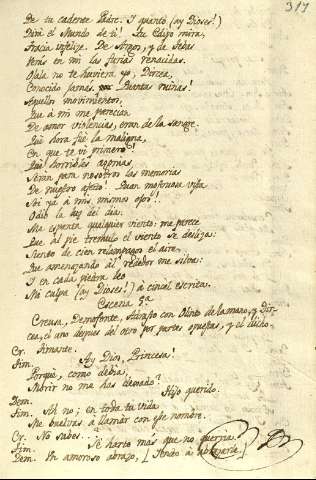 317
De tu cadente Padre. Y quanto (ay Dioses!)
Dirá el Mundo de ti! Lee Edipo mira,
Tracia infelize. De Argos, y de Tebas
Verás en mi las furias renacidas.
Ojala no te huviera yo, Dircea,
Conocido jamas. Quantas ruinas!
Aquellos movimientos,
Que à mi me parecian
De amor violencias, eran de la sangre.
Què hora fuè la maligna,
En que te vi primero!
Què horribles agonias
Seràn para nosotros las memorias
De nuestro afecto! Quan monstruosa vista
Soi yà à mis mismos ojos!
Odio la luz del dia.
Me espanta qualquier viento: me parece
Que al pie tremulo el viento se desliza:
Siento de cien relampagos el aire,
Que amenazando al rededor me silva:
Y en cada piedra leo
Mi culpa (ay Dioses!) à cincel escrita.
Escena 5ª
Creusa, Demofonte, Adrasto con Olinto de la mano, y Dir-
cea, el uno despues del otro por partes opuestas, y el dicho.
Cr. Timante.
Tim. Ay Dios, Princesa!
Porquè, como debia,
Morir no me has dexado?
Dem. Hijo querido.
Tim. Ah no; en toda tu vida
Me buelvas à llamar con esse nombre.
Cr. No sabes..
Tim. Sè harto mas que no querria.
Dem. Un amoroso abrazo, [Yendo à abrazarle]